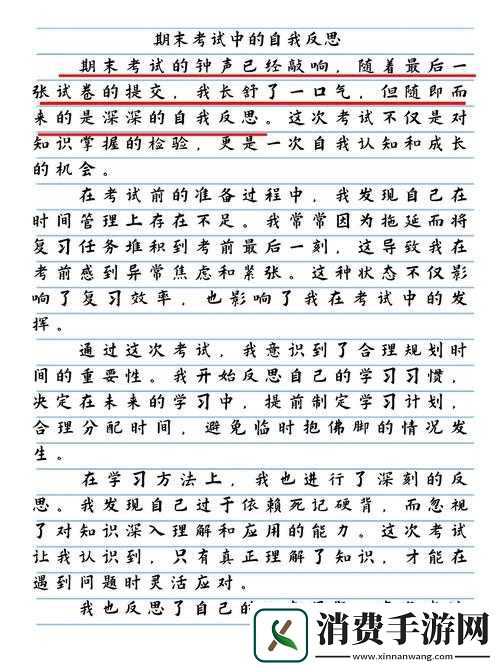 期末考试中的自我反思
期末考试的钟声已经敲响，随着最后一
张试卷的提交，我长舒了一口气，但随即而
来的是深深的自我反思。这次考试不仅是对
知识掌握的检验，更是一次自我认知和成长
的机会。
在考试前的准备过程中，我发现自己在
时间管理上存在不足。我常常因为拖延而将
复习任务堆积到考前最后一刻，这导致我在
考前感到异常焦虑和紧张。这种状态不仅影
响了复习效率，也影响了我在考试中的发
挥。
通过这次考试，我意识到了合理规划时
间的重要性。我开始反思自己的学习习惯，
决定在未来的学习中，提前制定学习计划，
合理分配时间，避免临时抱佛脚的情况发
生。
在学习方法上，我也进行了深刻的反
思。我发现自己过于依赖死记硬背，而忽视
了对知识深入理解和应用的能力。这次考试
让我认识到，只有真正理解了知识，才能在
遇到问题时灵活应对。
我也反思了自己的
消费手游网
www.xinnanwang.com